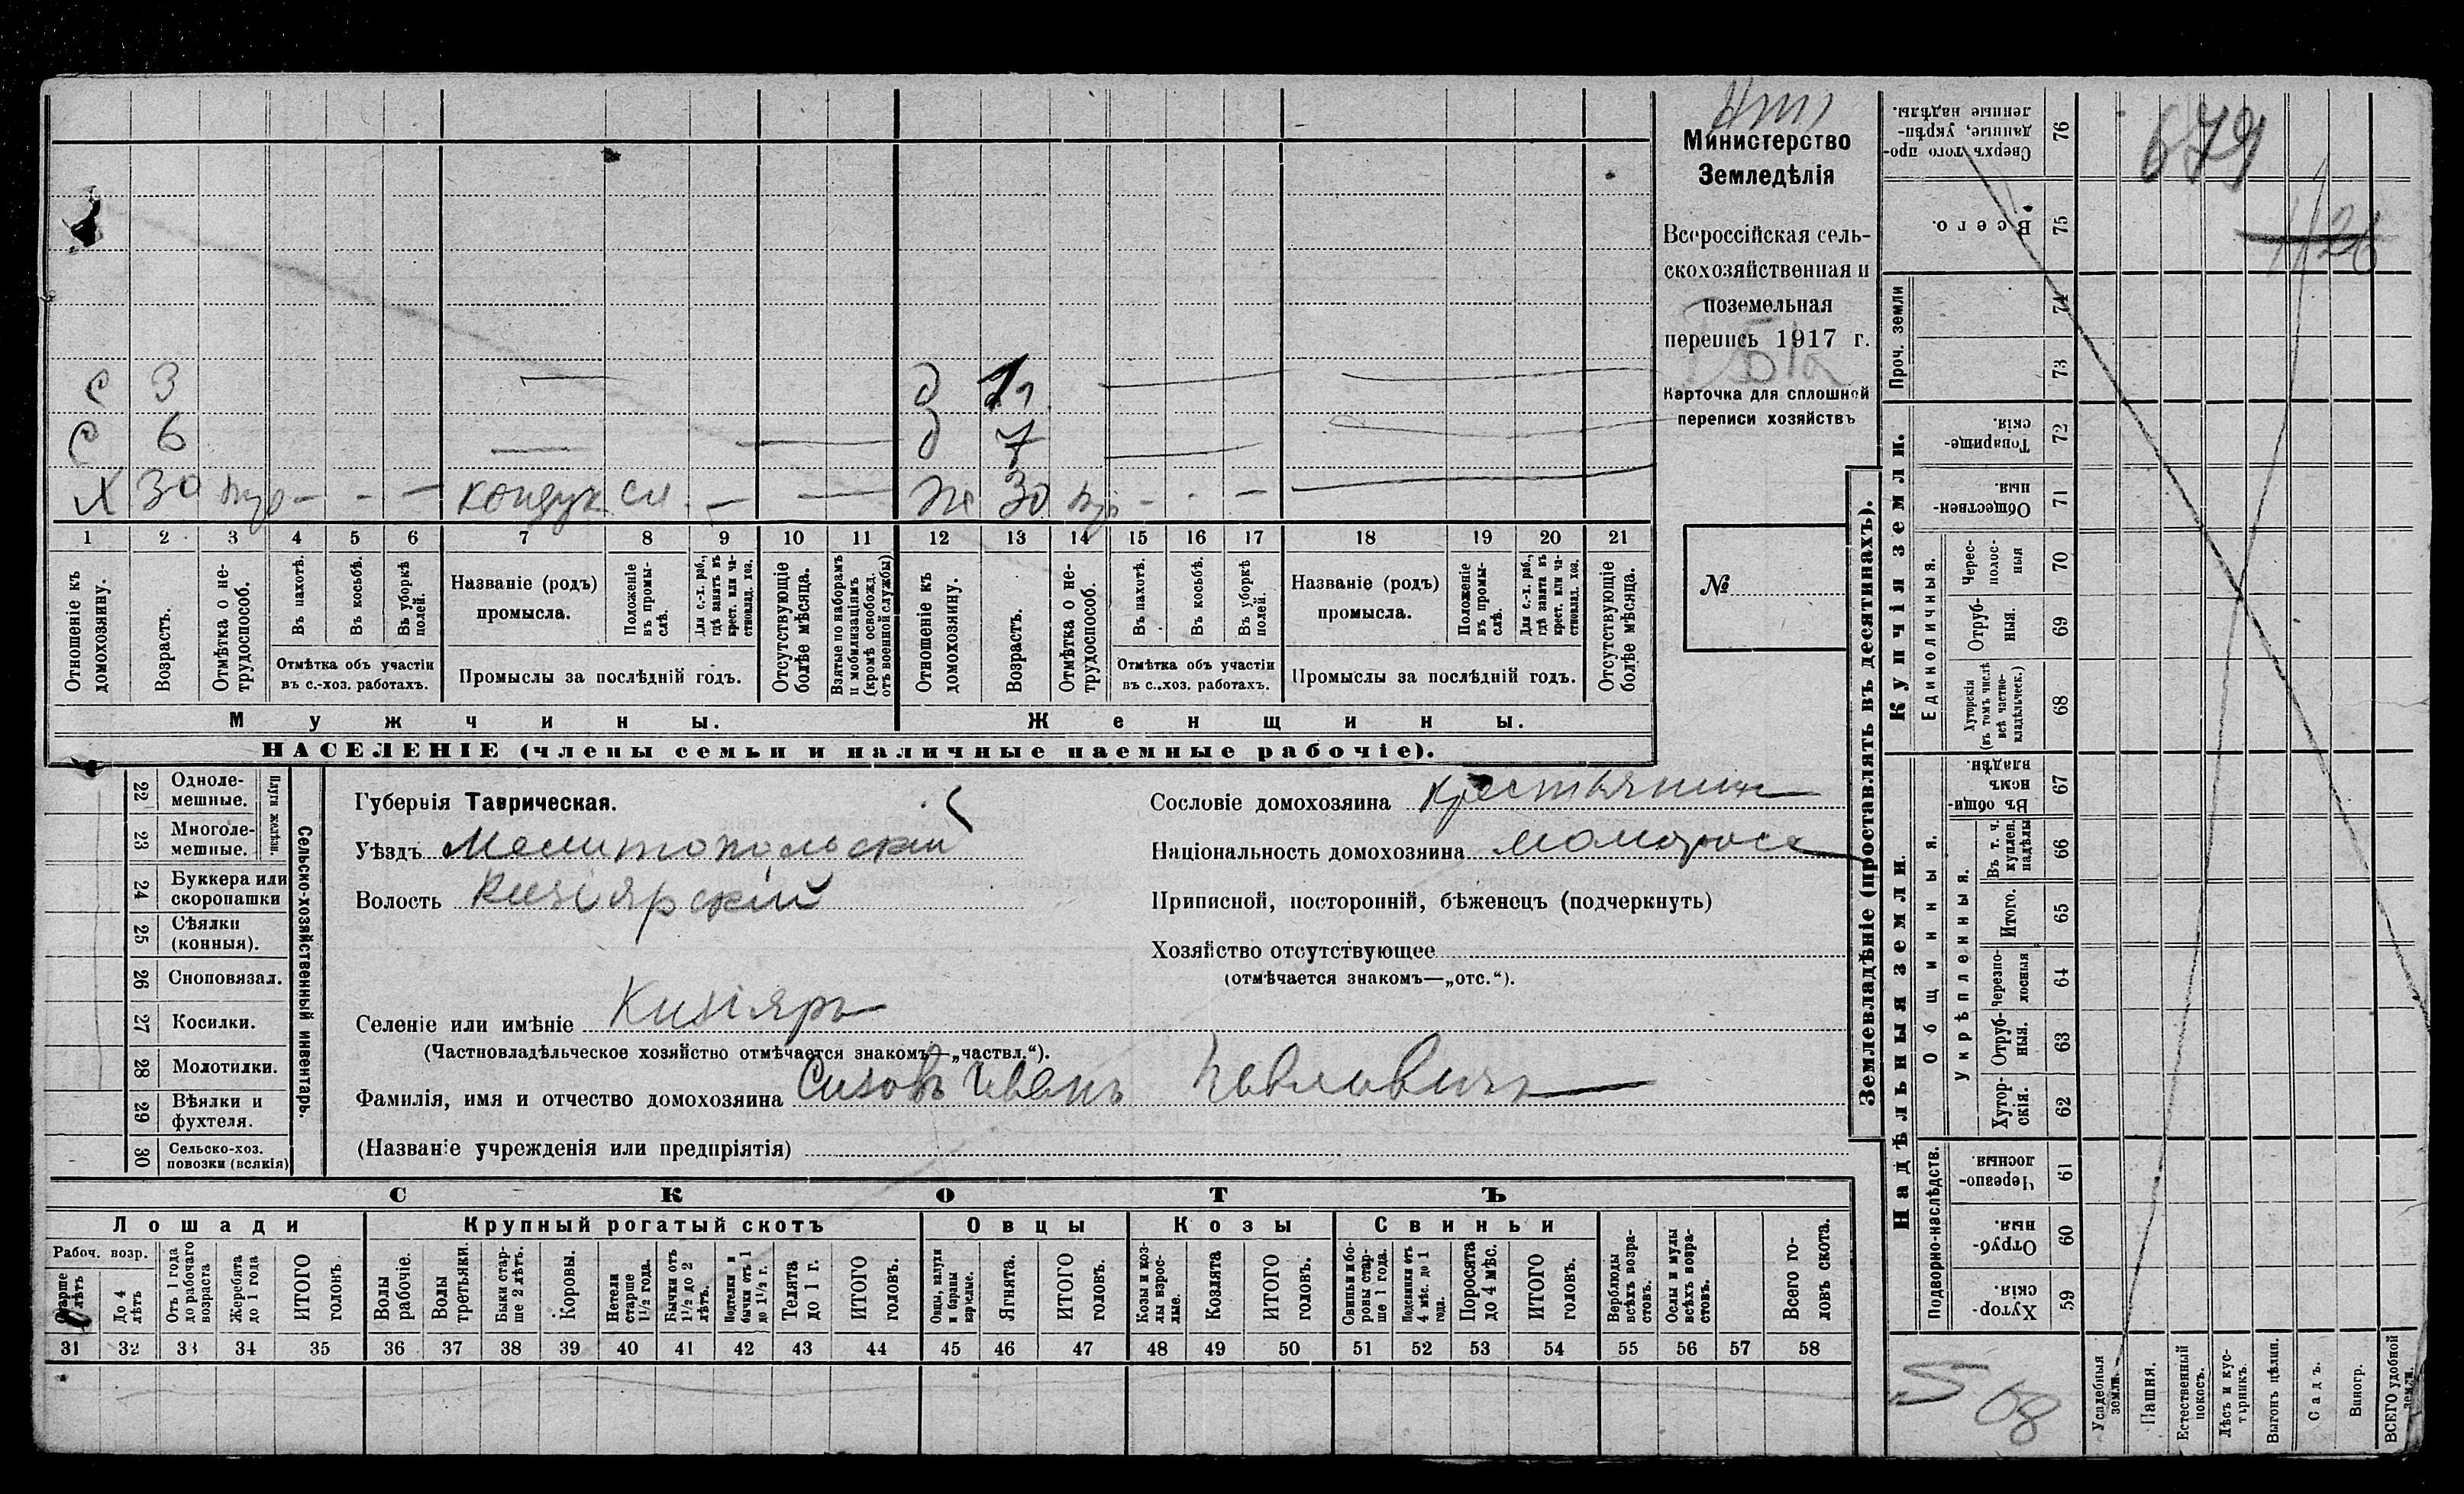 Министерство
Земледѣлія
Всероссійская сель-
скохозяйственная и
поземельная
перепись 1917 г.
Карточка для сплошной
переписи хозяйствъ
№
с 3 — д
с 6 — д 7
х 30 — - — кондук сл. — — ж 30 — - —
1 2 3 4 5 6 7 8 9 10 11 12 13 14 15 16 17 18 19 20 21
Отношеніе къ домохозяину.
Возрастъ.
Отмѣтка о не-трудоспособ.
Въ пахотѣ.
Въ косьбѣ.
Въ уборкѣ полей.
Отмѣтка объ участіи
въ с.-хоз. работахъ.
Названіе (родъ)
промысла.
Положеніе въ промы-слѣ.
Для с.-х. раб., гдѣ занятъ въ крест. или ча-стновлад. хоз.
Промыслы за послѣдній годъ.
Отсутствующіе болѣе мѣсяца.
Взятые по наборамъ и мобилизаціямъ (кромѣ освобожд. отъ военной службы)
Отношеніе къ домохозяину.
Возрастъ.
Отмѣтка о не-трудоспособ.
Въ пахотѣ.
Въ косьбѣ.
Въ уборкѣ полей.
Отмѣтка объ участіи
въ с.-хоз. работахъ.
Названіе (родъ)
промысла.
Положеніе въ промы-слѣ.
Для с.-х. раб., гдѣ занята въ крест. или ча-стновлад. хоз.
Промыслы за послѣдній годъ.
Отсутствующіе болѣе мѣсяца.
Мужчины. Женщины.
НАСЕЛЕНІЕ (члены семьи и наличные наемные рабочіе).
Сельско-хозяйственный инвентарь.
Плуги желѣзн.
22 Одноле-мешные.
23 Многоле-мешные.
24 Буккера или скоропашки
25 Сѣялки (конныя).
26 Сноповязал.
27 Косилки.
28 Молотилки.
29 Вѣялки и фухтеля.
30 Сельско-хоз. повозки (всякія)
Губернія Таврическая.
Уѣздъ Мелитопольскій
Волость Кизіярскій
Селеніе или имѣніе Кизіяръ
(Частновладѣльческое хозяйство отмѣчается знакомъ—„частвл.“).
Фамилія, имя и отчество домохозяина Сизовъ Иванъ Павловичъ
(Названіе учрежденія или предпріятія)
Сословіе домохозяина крестьянинъ
Національность домохозяина малоросс
Приписной, посторонній, бѣженецъ (подчеркнуть)
Хозяйство отсутствующее
(отмѣчается знакомъ—„отс.“).
СКОТЪ
Лошади Крупный рогатый скотъ Овцы Козы Свиньи
Рабоч. возр.
Старше 4 лѣтъ
До 4 лѣтъ
Отъ 1 года до рабочаго возраста
Жеребята до 1 года
ИТОГО головъ
Волы рабочіе.
Волы третьяки.
Быки стар-ше 2 лѣтъ.
Коровы.
Нетели старше 1½ года.
Бычки отъ 1½ до 2 лѣтъ.
Подтелки и бычки отъ 1 до 1½ г.
Телята до 1 г.
ИТОГО головъ.
Овцы, валухи и бараны взрослые.
Ягнята.
ИТОГО головъ.
Козы и коз-лы взрос-лые.
Козлята
ИТОГО головъ.
Свиньи и бо-ровы стар-ше 1 года.
Подсвинки отъ 4 мѣс. до 1 года.
Поросята до 4 мѣс.
ИТОГО головъ.
Верблюды всѣхъ возра-стовъ.
Ослы и мулы всѣхъ возра-стовъ.
Всего го-ловъ скота.
31 32 33 34 35 36 37 38 39 40 41 42 43 44 45 46 47 48 49 50 51 52 53 54 55 56 57 58
Землевладѣніе (проставлять въ десятинахъ).
Сверхъ того про-данные, укрѣп-ленные надѣлы. 76
Всего. 75
Проч. земли
74
73
Купчія земли.
Товарище-скія. 72
Обществен-ныя. 71
Единоличныя.
Черес-полос-ныя 70
Отруб-ныя. 69
Хуторскія (въ томъ числѣ всѣ частно-владѣльческ.) 68
Надѣльныя земли.
Общинныя.
Въ общин-номъ владѣн. 67
Укрѣпленныя.
Въ т. ч. куплен. надѣлы 66
Итого. 65
Черезпо-лосныя 64
Отруб-ныя. 63
Хутор-скія. 62
Подворно-наслѣдств.
Черезпо-лосныя 61
Отруб-ныя. 60
Хутор-скія. 59
Усадебныя земли.
Пашня.
Естественный покосъ.
Лѣсъ и кус-тарникъ.
Выгонъ цѣлин.
Садъ.
Виногр.
ВСЕГО удобной земли.
679